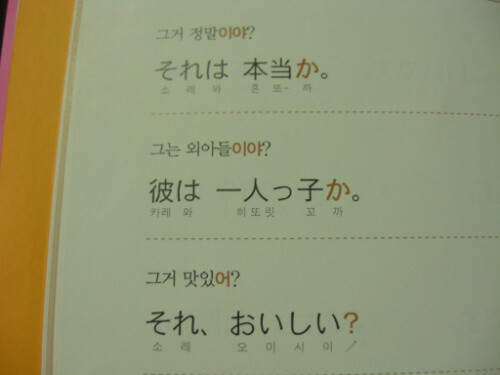 그거 정말이야?
それは 本当か。
소 레 와 혼 또- 까
그는 외아들이야?
彼は 一人っ子か。
카레 와 히또릿 꼬 까
그거 맛있어?
それ、おいしい?
소 레 오 이 시 이 ↗